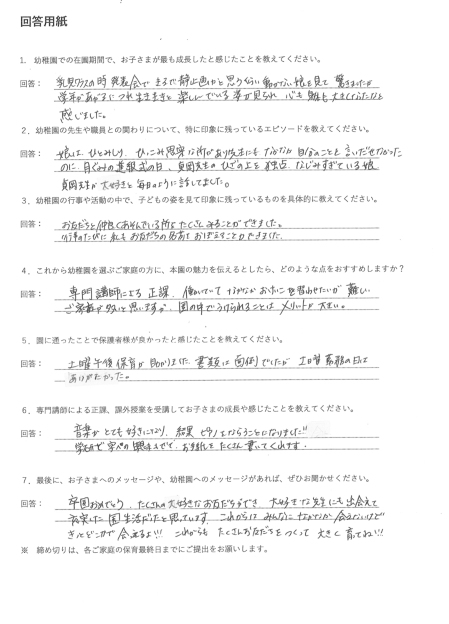 回答用紙
1. 幼稚園での在園期間で、お子さまが最も成長したと感じたことを教えてください。
回答： 乳児クラスの時 発表会で まるで静止画かと思うくらい動かない娘を見て 驚きましたが
学年があがるにつれ生き生きと 楽しんでいる姿が見られ 心も 体も大きくなったなと
感じました。
2．幼稚園の先生や職員との関わりについて、特に印象に残っているエピソードを教えてください。
回答： 娘は ひとみしり、ひっこみ思案な所があり先生にも なかなか 自分のことを 言いだせなかった
のに、の進級式の日、先生のひざの上を 独占、なじみすぎている娘
先生が大好きと 毎日のように話してました。
3．幼稚園の行事や活動の中で、子どもの姿を見て印象に残っているものを具体的に教えてください。
回答： お友だちと仲良くあそんでいる所を たくさん みることができました。
行事のたびに 私も お友だちの名前を おぼえることができました。
4．これから幼稚園を選ぶご家庭の方に、本園の魅力を伝えるとしたら、どのような点をおすすめしますか？
回答： 専門講師による 正課、働いていて なかなか おけいこを習わせたいが 難しい
ご家庭が多いと思いますが、園の中で うけられることは メリットが大きい。
5．園に通ったことで保護者様が良かったと感じたことを教えてください。
回答： 土曜午後保育が 助かりました、書類は 面倒でしたが 土曜 勤務の日は
ありがたかった。
6．専門講師による正課、課外授業を受講してお子さまの成長や感じたことを教えてください。
回答： 音楽が とても好きになり、結果 ピアノをならうことになりました!!
学研で 字への 興味もでて、お手紙を たくさん 書いてくれます。
7．最後に、お子さまへのメッセージや、幼稚園へのメッセージがあれば、ぜひお聞かせください。
回答： 卒園おめでとう、たくさんの大好きなお友だちができ 大好きな先生にも 出会えて
充実した 園生活だったと思っています。これからは みんなに なかなか 会えないけど
きっとどこかで 会えるよ!!! これからも たくさんお友だちを つくって 大きく 育ってね!!!
※ 締め切りは、各ご家庭の保育最終日までにご提出をお願いします。